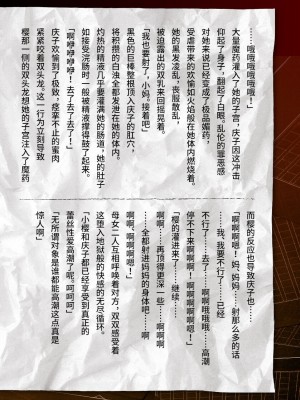 ……哦哦哦哦哦哦！」
大量魔药灌入了她的子宫，庆子因这冲击
仰起了身子，翻起了白眼。乱伦的罪恶感
对她来说已经变成了极品媚药，
受虐带来的欢愉如火焰般在她体内燃烧着。
她的黑发凌乱，丧服散乱，
被迫露出的双乳来回摇晃着。
「我也要射了，小妈。接着吧」
黑色的巨棒整根顶入庆子的肛穴，
将积攒的白浊全部发泄在她的体内。
灼热的精液几乎要灌满她的肠道，她的肚子
如接受浣肠时一般被精液撑得鼓了起来。
「啊啊啊啊啊！去了去了去了！」
庆子欢愉到了极致，痉挛不止的蜜肉
紧紧咬着双头龙。这一行为立刻导致
樱那一侧的双头龙想她的子宫注入了魔药
而樱的反应也导致庆子也……
「啊啊啊嗯！妈、妈妈……射那么多的话
……我、我要不行了……已经
不行了……去了……啊啊哦哦……高潮
停不下来啊啊啊！停不下来啊啊啊啊嗯！」
「樱的灌进来了……继续……
啊啊……再顶得更深一些……啊啊啊
……全都射进妈妈的身体吧……啊
啊啊、啊啊啊啊嗯！」
母女二人互相呼唤着对方，双双感受着
这堕入地狱般的快感的无尽循环。
「小樱和庆子都已经享受到真正的
蕾丝性爱高潮了呢。呵呵呵」
「无所谓对象是谁都能高潮这点真是
惊人啊」